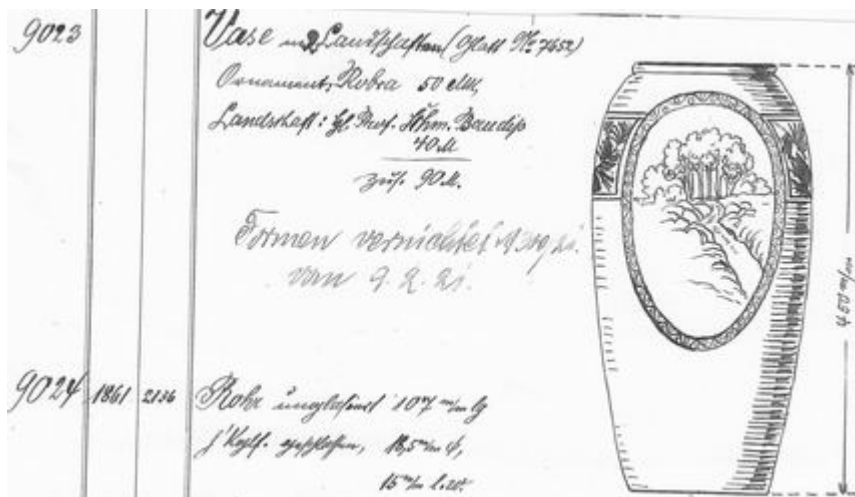 9023
Vase m. 2 Landschaften (Glatt No 7652)
Ornament, Robra 50 M,
Landschaft: Prof. Baudiß
40 M
zus. 90 M.
Formen vernichtet
vom 9. 2. 21.
450 m/m
9024 1861 2136 Rohr unglasiert 107 m/m lg
geschlossen, 18,5 m/m ϕ,
15 m/m l.W.